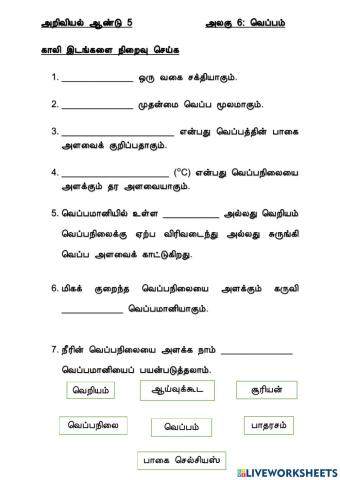 அறிவியல் ஆண்டு 5 அலகு 6: வெப்பம்
காலி இடங்களை நிறைவு செய்க
1. ______________ ஒரு வகை சக்தியாகும்.
2. ______________ முதன்மை வெப்ப மூலமாகும்.
3. ______________ என்பது வெப்பத்தின் பாகை
அளவைக் குறிப்பதாகும்.
4. _____________________ (°C) என்பது வெப்பநிலையை
அளக்கும் தர அளவையாகும்.
5. வெப்பமானியில் உள்ள ___________ அல்லது வெறியம்
வெப்பநிலைக்கு ஏற்ப விரிவடைந்து அல்லது சுருங்கி
வெப்ப அளவைக் காட்டுகிறது.
6. மிகக் குறைந்த வெப்பநிலையை அளக்கும் கருவி
____________ வெப்பமானியாகும்.
7. நீரின் வெப்பநிலையை அளக்க நாம் ______________
வெப்பமானியைப் பயன்படுத்தலாம்.
வெறியம் ஆய்வுக்கூட சூரியன்
வெப்பநிலை வெப்பம் பாதரசம்
பாகை செல்சியஸ்
LIVEWORKSHEETS